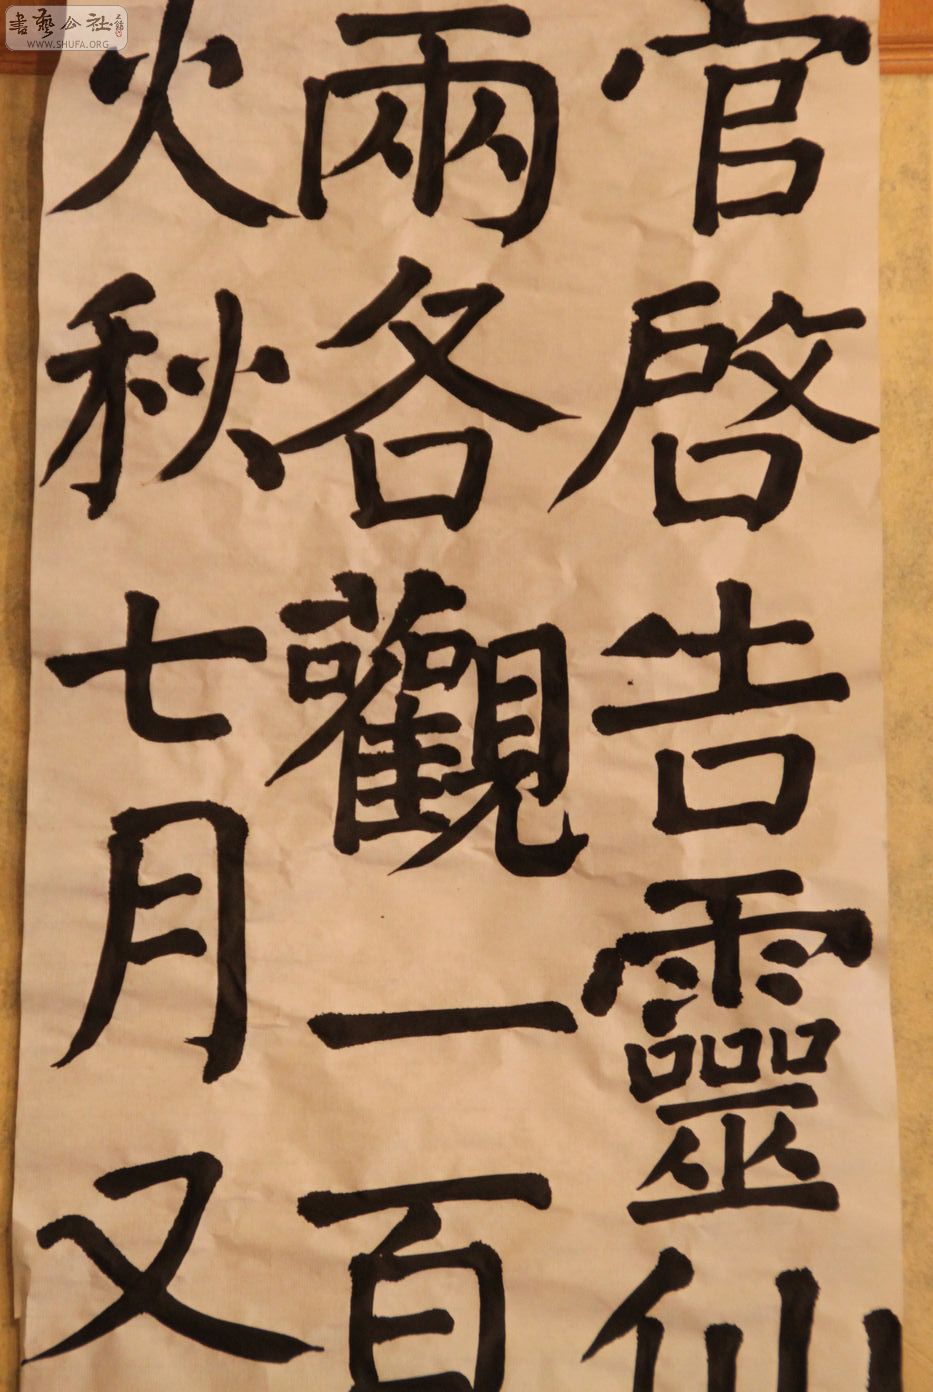 官啓告靈仙
兩各觀一百
火秋七月又
書藝公社
WWW.SHUFA.ORG